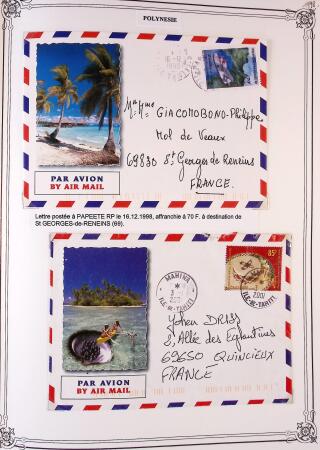 POLYNESIE
16-12
1998
Mr Mme GIACOMOBONO-Philippe
Mol de Veaux
69830 St Georges de Reneins
FRANCE.
PAR AVION
BY AIR MAIL
Lettre postée à PAPEETE RP le 16.12.1998, affranchie à 70 F. à destination de
St GEORGES-de-RENEINS (69).
MAHINA
ILE DE TAHITI
85F
2001
ILE DE TAHITI
3, Allée des Eglantines
69650 QUINCIEUX
FRANCE
PAR AVION
BY AIR MAIL